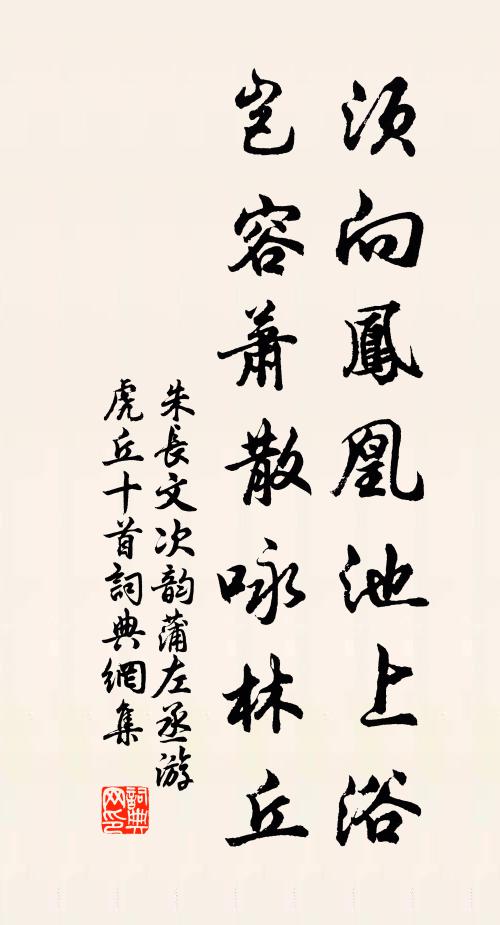 須向鳳凰池上浴
豈容蕭散咏林丘
朱長文次韵蒲左丞游
虎丘十首詞典網集
詞典
网印